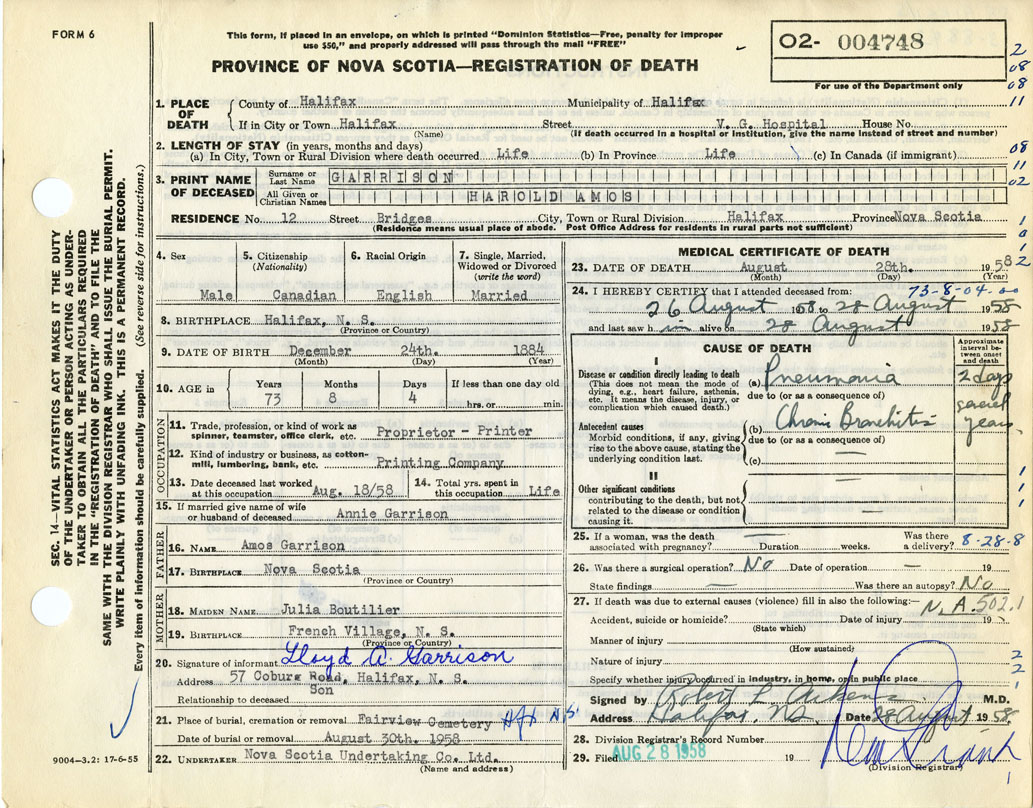 FORM 6
This form, if placed in an envelope, on which is printed “Dominion Statistics—Free, penalty for improper
use $50,” and properly addressed will pass through the mail “FREE”
PROVINCE OF NOVA SCOTIA—REGISTRATION OF DEATH
02- 004748
For use of the Department only
2
08
08
11
08
11
02
1
2
1. PLACE OF DEATH
County of Halifax Municipality of Halifax
If in City or Town Halifax Street V. G. Hospital House No.
(Name) (If death occurred in a hospital or institution, give the name instead of street and number)
2. LENGTH OF STAY (in years, months and days)
(a) In City, Town or Rural Division where death occurred Life (b) In Province Life (c) In Canada (if immigrant)
3. PRINT NAME OF DECEASED
Surname or Last Name GARRISON
All Given or Christian Names HAROLD AMOS
RESIDENCE No. 12 Street Bridges City, Town or Rural Division Halifax Province Nova Scotia
(Residence means usual place of abode. Post Office Address for residents in rural parts not sufficient)
4. Sex
Male
5. Citizenship
(Nationality)
Canadian
6. Racial Origin
English
7. Single, Married,
Widowed or Divorced
(write the word)
Married
8. BIRTHPLACE Halifax, N. S.
(Province or Country)
9. DATE OF BIRTH December 24th. 1884
(Month) (Day) (Year)
10. AGE in
Years Months Days If less than one day old
73 8 4 hrs. or min.
OCCUPATION
11. Trade, profession, or kind of work as
spinner, teamster, office clerk, etc. Proprietor - Printer
12. Kind of industry or business, as cotton-
mill, lumbering, bank, etc. Printing Company
13. Date deceased last worked
at this occupation Aug. 18/58
14. Total yrs. spent in
this occupation Life
15. If married give name of wife
or husband of deceased Annie Garrison
FATHER
16. NAME Amos Garrison
17. BIRTHPLACE Nova Scotia
(Province or Country)
MOTHER
18. MAIDEN NAME Julia Boutilier
19. BIRTHPLACE French Village, N. S.
(Province or Country)
20. Signature of informant Lloyd A. Garrison
Address 57 Coburg Road, Halifax, N. S.
Relationship to deceased Son
21. Place of burial, cremation or removal Fairview Cemetery Hfx N.S.
Date of burial or removal August 30th. 1958
22. UNDERTAKER Nova Scotia Undertaking Co. Ltd.
(Name and address)
MEDICAL CERTIFICATE OF DEATH
23. DATE OF DEATH August 28th. 1958
(Month) (Day) (Year)
73-8-04-00
24. I HEREBY CERTIFY that I attended deceased from:
26 August 1958 to 28 August 1958
and last saw him alive on 28 August 1958
CAUSE OF DEATH
Approximate
interval be-
tween onset
and death
I
Disease or condition directly leading to death
(This does not mean the mode of
dying, e.g., heart failure, asthenia,
etc. It means the disease, injury, or
complication which caused death.)
(a) Pneumonia 2 days
due to (or as a consequence of)
Antecedent causes
Morbid conditions, if any, giving
rise to the above cause, stating the
underlying condition last.
(b) Chronic Bronchitis several years
due to (or as a consequence of)
(c) —
II
Other significant conditions
contributing to the death, but not
related to the disease or condition
causing it. —
25. If a woman, was the death
associated with pregnancy? — Duration weeks. Was there
a delivery? 8-28-8
26. Was there a surgical operation? No Date of operation — 19
State findings — Was there an autopsy? No
27. If death was due to external causes (violence) fill in also the following:— N.A. 502.1
Accident, suicide or homicide? Date of injury 19
(State which)
Manner of injury
(How sustained)
Nature of injury
Specify whether injury occurred in industry, in home, or in public place
Signed by Robert L. Aikens M.D.
Address Halifax, NS Date 28 August 1958
28. Division Registrar's Record Number
29. Filed AUG 28 1958 19
(Division Registrar)
1
1
1
2
2
1
1
SEC. 14—VITAL STATISTICS ACT MAKES IT THE DUTY
OF THE UNDERTAKER OR PERSON ACTING AS UNDER-
TAKER TO OBTAIN ALL THE PARTICULARS REQUIRED
IN THE “REGISTRATION OF DEATH” AND TO FILE THE
SAME WITH THE DIVISION REGISTRAR WHO SHALL ISSUE THE BURIAL PERMIT.
WRITE PLAINLY WITH UNFADING INK. THIS IS A PERMANENT RECORD.
Every item of information should be carefully supplied. (See reverse side for instructions.)
9004-3.2: 17-6-55